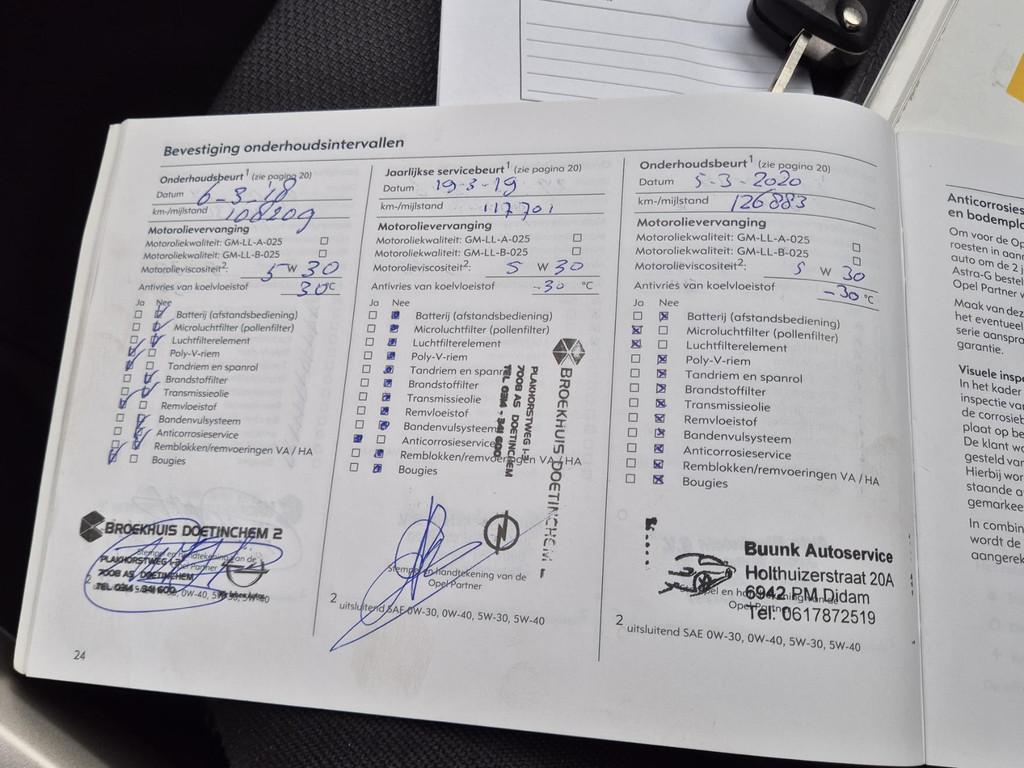 Bevestiging onderhoudsintervallen
Onderhoudsbeurt¹ (zie pagina 20)
Datum 6-3-'18
km-/mijlstand 108209
Motorolievervanging
Motoroliekwaliteit: GM-LL-A-025
Motoroliekwaliteit: GM-LL-B-025
Motorolieviscositeit²: 5 W 30
Antivries van koelvloeistof 30 °C
Ja Nee
Batterij (afstandsbediening)
Microluchtfilter (pollenfilter)
Luchtfilterelement
Poly-V-riem
Tandriem en spanrol
Brandstoffilter
Transmissieolie
Remvloeistof
Bandenvulsysteem
Anticorrosieservice
Remblokken/remvoeringen VA / HA
Bougies
BROEKHUIS DOETINCHEM 2
Stempel en handtekening van de
PLAKHORSTWEG 1-3
Partner
7008 AS DOETINCHEM
TEL 0314 - 341 600
2
0W-40, 5W-30, 5W-40
24
Jaarlijkse servicebeurt¹ (zie pagina 20)
Datum 19-3-19
km-/mijlstand 117701
Motorolievervanging
Motoroliekwaliteit: GM-LL-A-025
Motoroliekwaliteit: GM-LL-B-025
Motorolieviscositeit²: 5 W 30
Antivries van koelvloeistof -30 °C
Ja Nee
Batterij (afstandsbediening)
Microluchtfilter (pollenfilter)
Luchtfilterelement
Poly-V-riem
Tandriem en spanrol
Brandstoffilter
Transmissieolie
Remvloeistof
Bandenvulsysteem
Anticorrosieservice
Remblokken/remvoeringen VA / HA
Bougies
BROEKHUIS DOETINCHEM
PLAKHORSTWEG 1-3
7008 AS DOETINCHEM
TEL 0314 - 341 600
Stempel en handtekening van de
Opel Partner
2 uitsluitend SAE 0W-30, 0W-40, 5W-30, 5W-40
Onderhoudsbeurt¹ (zie pagina 20)
Datum 5-3-2020
km-/mijlstand 126883
Motorolievervanging
Motoroliekwaliteit: GM-LL-A-025
Motoroliekwaliteit: GM-LL-B-025
Motorolieviscositeit²: 5 W 30
Antivries van koelvloeistof -30 °C
Ja Nee
Batterij (afstandsbediening)
Microluchtfilter (pollenfilter)
Luchtfilterelement
Poly-V-riem
Tandriem en spanrol
Brandstoffilter
Transmissieolie
Remvloeistof
Bandenvulsysteem
Anticorrosieservice
Remblokken/remvoeringen VA / HA
Bougies
Buunk Autoservice
Holthuizerstraat 20A
6942 PM Didam
Tel: 0617872519
2 uitsluitend SAE 0W-30, 0W-40, 5W-30, 5W-40
Anticorrosies
en bodempla
Om voor de Op
roesten in aanm
auto om de 2 j
Astra-G bestel
Opel Partner v
Maak van deze
het eventueel
serie aanspra
garantie.
Visuele inspe
In het kader
inspectie van
de corrosieb
plaat op be
De klant wo
gesteld van
Hierbij wor
staande a
gemarkee
In combin
wordt de
aangerek